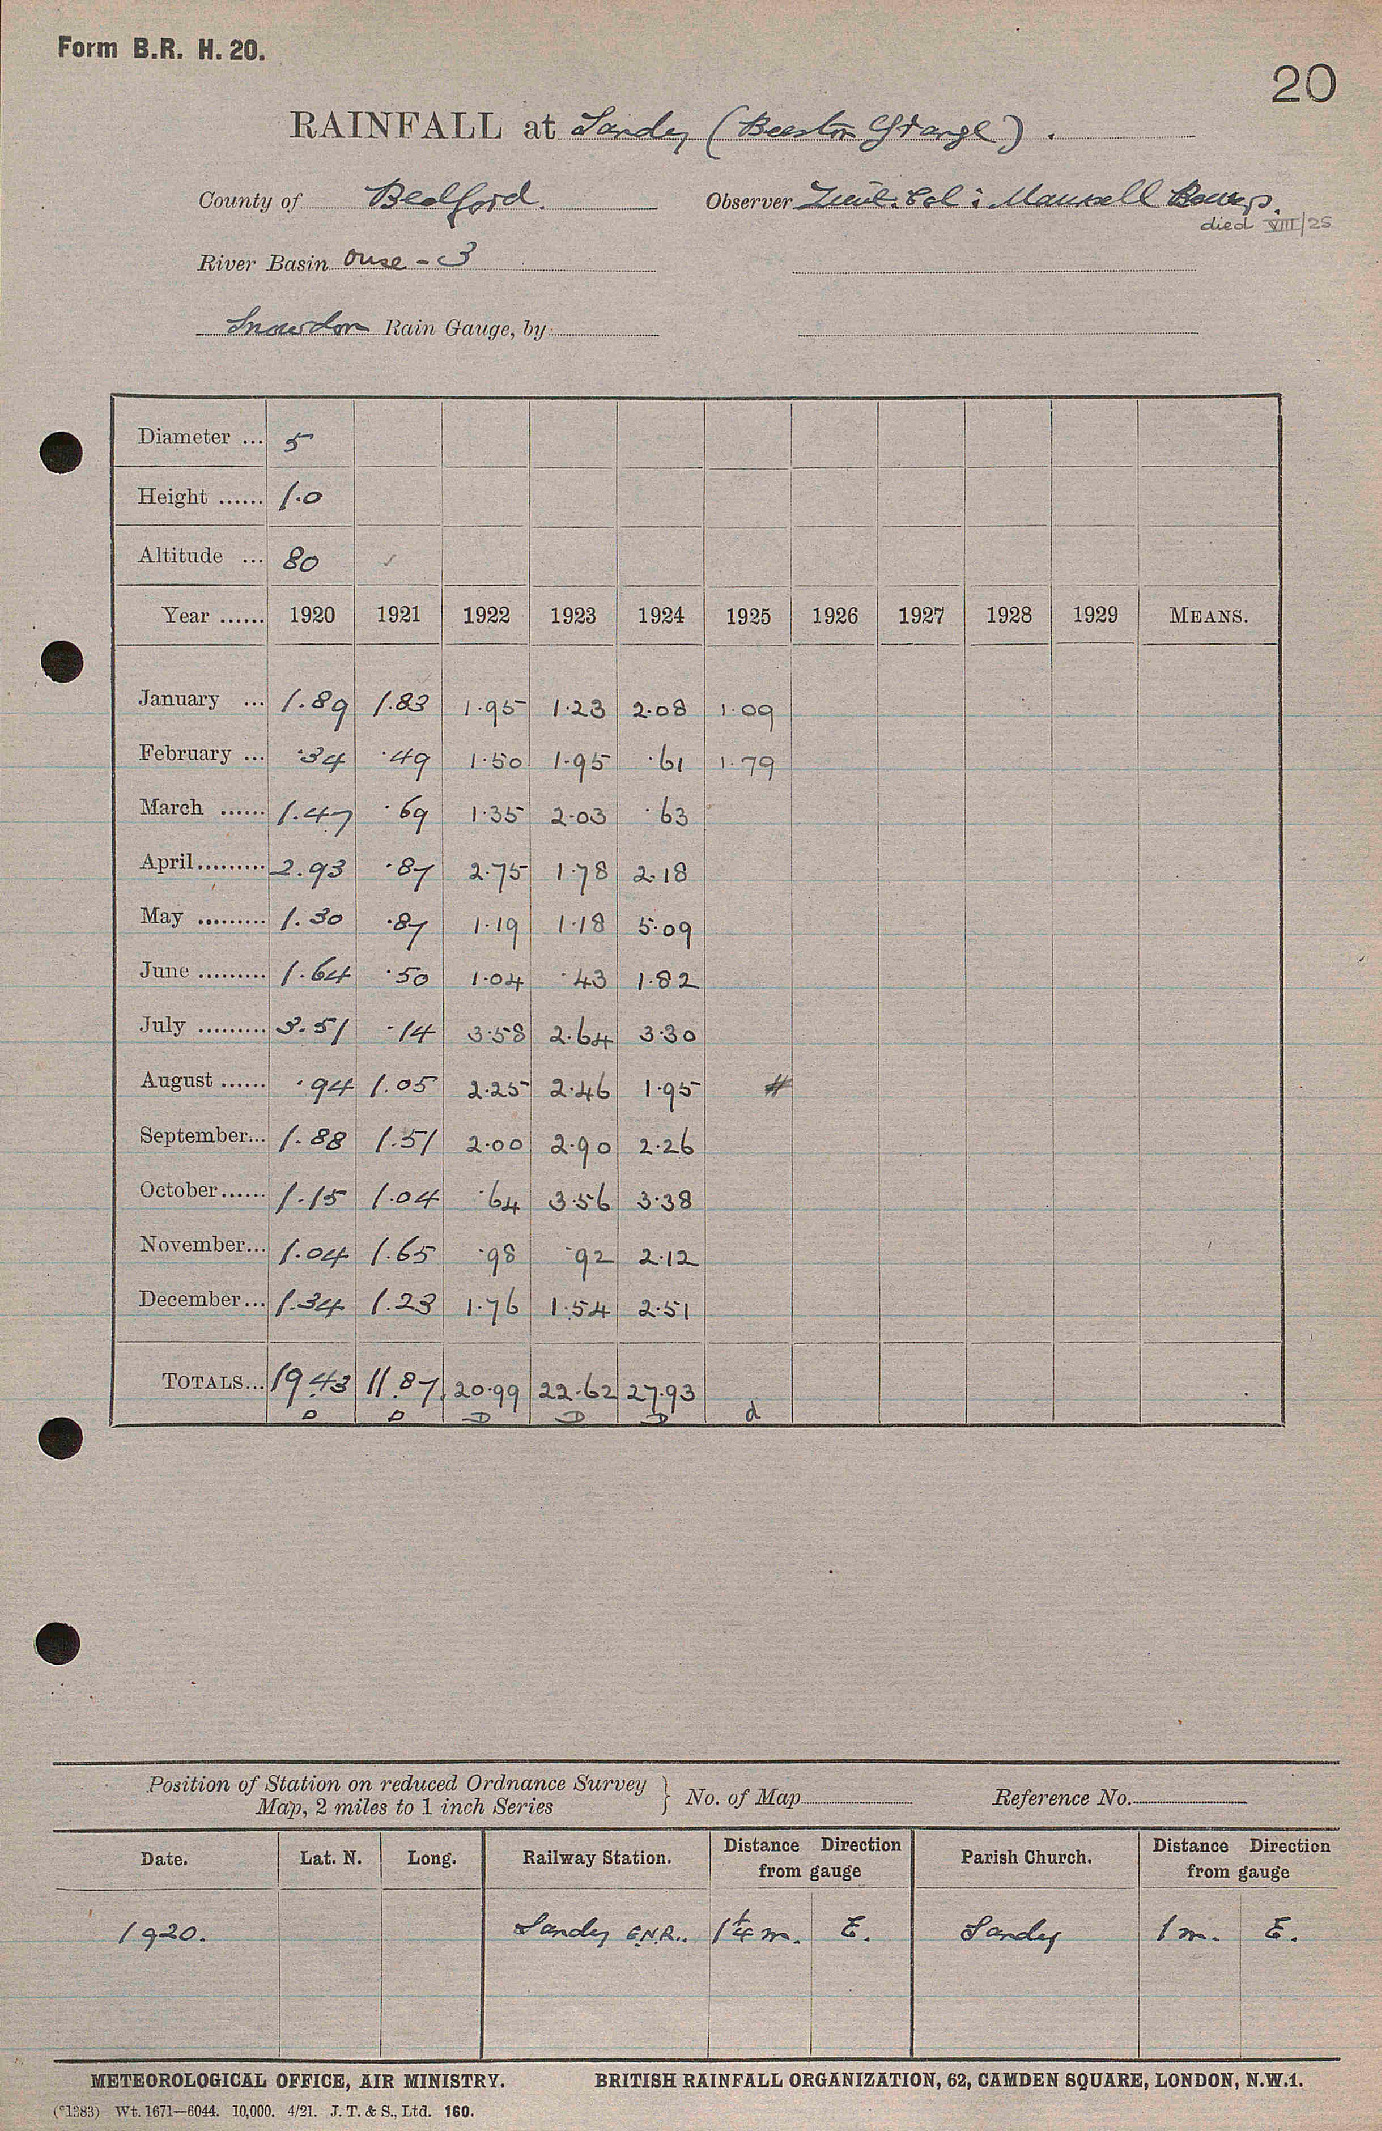 Form B.R. H. 20.
20
RAINFALL at Sandy (Beeston Grange).
County of Bedford. Observer Lieut. Col: Maunsell Bowers.
died VIII/25
River Basin Ouse - 3
Snowdon Rain Gauge, by
Diameter ... 5
Height ...... 1.0
Altitude ... 80
Year ...... 1920 1921 1922 1923 1924 1925 1926 1927 1928 1929 MEANS.
January ... 1.89 1.83 1.95 1.23 2.08 1.09
February ... .34 .49 1.50 1.95 .61 1.79
March ...... 1.47 .69 1.35 2.03 .63
April ......... 2.93 .87 2.75 1.78 2.18
May ......... 1.30 .87 1.19 1.18 5.09
June ......... 1.64 .50 1.04 .43 1.82
July ......... 3.51 .14 3.58 2.64 3.30
August ...... .94 1.05 2.25 2.46 1.95 #
September... 1.88 1.51 2.00 2.90 2.26
October...... 1.15 1.04 .64 3.56 3.38
November... 1.04 1.65 .98 .92 2.12
December... 1.34 1.23 1.76 1.54 2.51
TOTALS... 19.43 11.87 20.99 22.62 27.93
D D D D D d
Position of Station on reduced Ordnance Survey
Map, 2 miles to 1 inch Series } No. of Map Reference No.
Date. Lat. N. Long. Railway Station. Distance Direction from gauge Parish Church. Distance Direction from gauge
1920. Sandy G.N.R. 1¼ m. E. Sandy 1 m. E.
METEOROLOGICAL OFFICE, AIR MINISTRY. BRITISH RAINFALL ORGANIZATION, 62, CAMDEN SQUARE, LONDON, N.W.1.
(*1383) Wt. 1671—6044. 10,000. 4/21. J. T. & S., Ltd. 160.